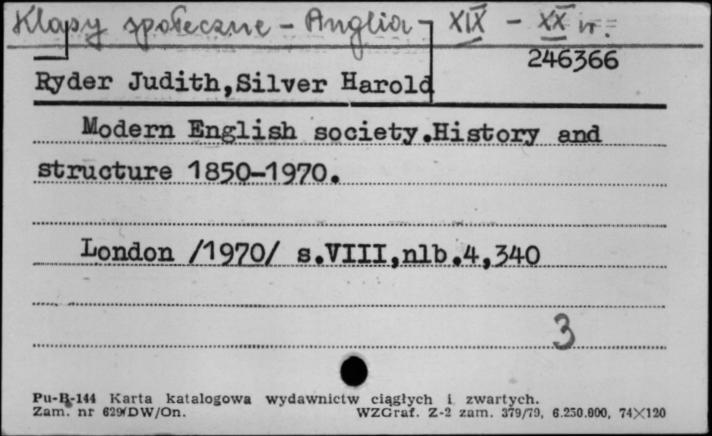 Klasy społeczne - Anglia - XIX - XX w.
246366
Ryder Judith,Silver Harold
Modern English society.History and
structure 1850-1970.
London /1970/ s.VIII,nlb.4,340
3
Pu-B-144 Karta katalogowa wydawnictw ciągłych i zwartych.
Zam. nr 629/DW/On. WZGraf. Z-2 zam. 379/79, 6.250.000, 74×120